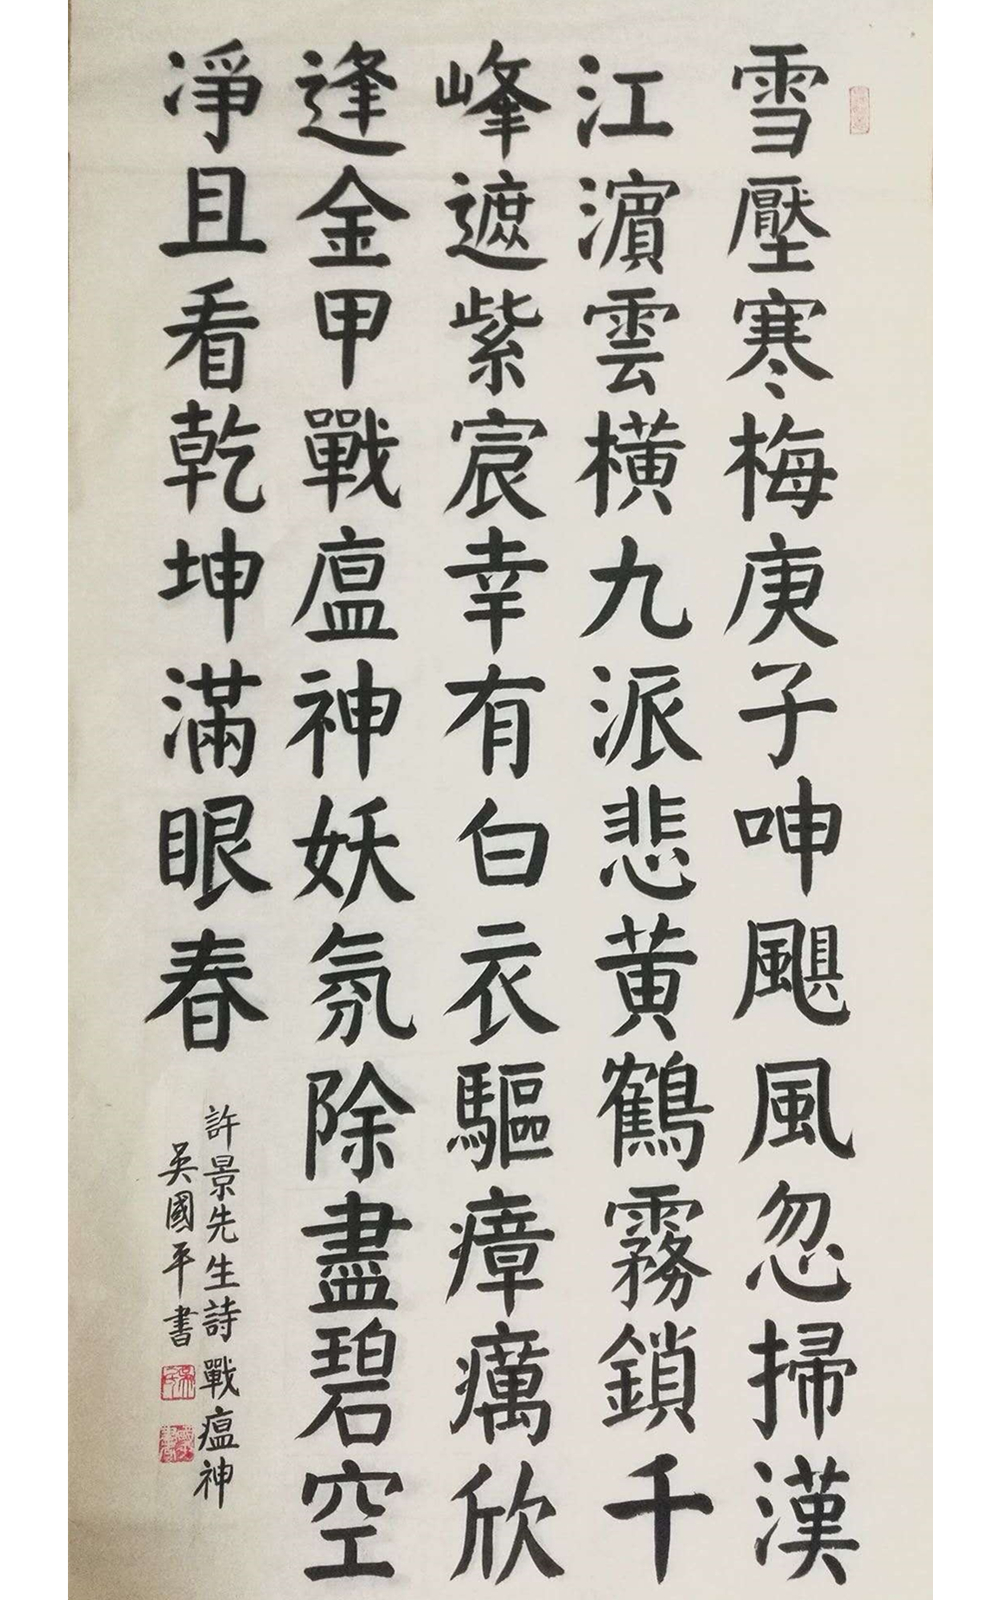 雪壓寒梅庚子呻颶風忽掃漢
江濱雲橫九派悲黃鶴霧鎖千
峰遮紫宸幸有白衣驅瘴癘欣
逢金甲戰瘟神妖氛除盡碧空
淨且看乾坤滿眼春
許景先生詩 戰瘟神
吳國平書